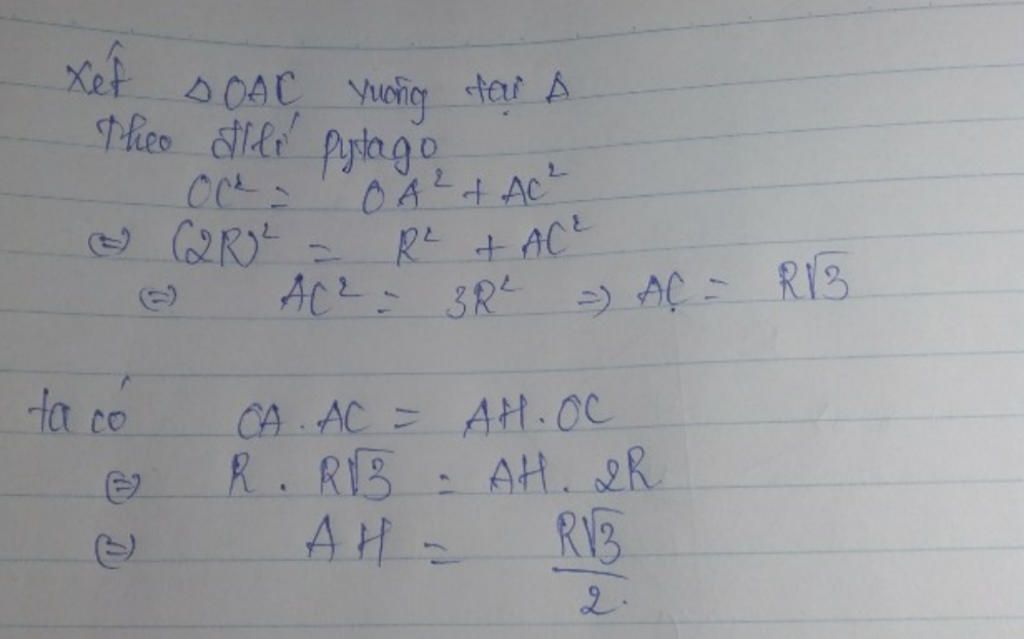 Xét △OAC vuông tại A
Theo đ/lí pytago
OC² = OA² + AC²
⇔ (2R)² = R² + AC²
⇔ AC² = 3R² ⇒ AC = R√3
ta có OA . AC = AH . OC
⇔ R . R√3 = AH . 2R
⇔ AH = R√3
2